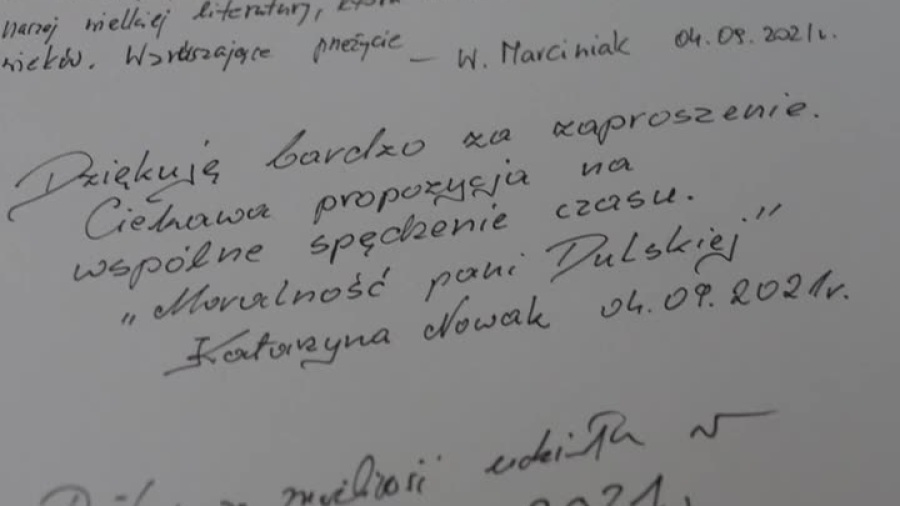 naszej wielkiej literatury, która
wieków. Wzruszające przeżycie – W. Marciniak 04.09.2021r.
Dziękuję bardzo za zaproszenie.
Ciekawa propozycja na
wspólne spędzenie czasu.
„Moralność pani Dulskiej”
Katarzyna Nowak 04.09.2021r.
udziału w
2021r.